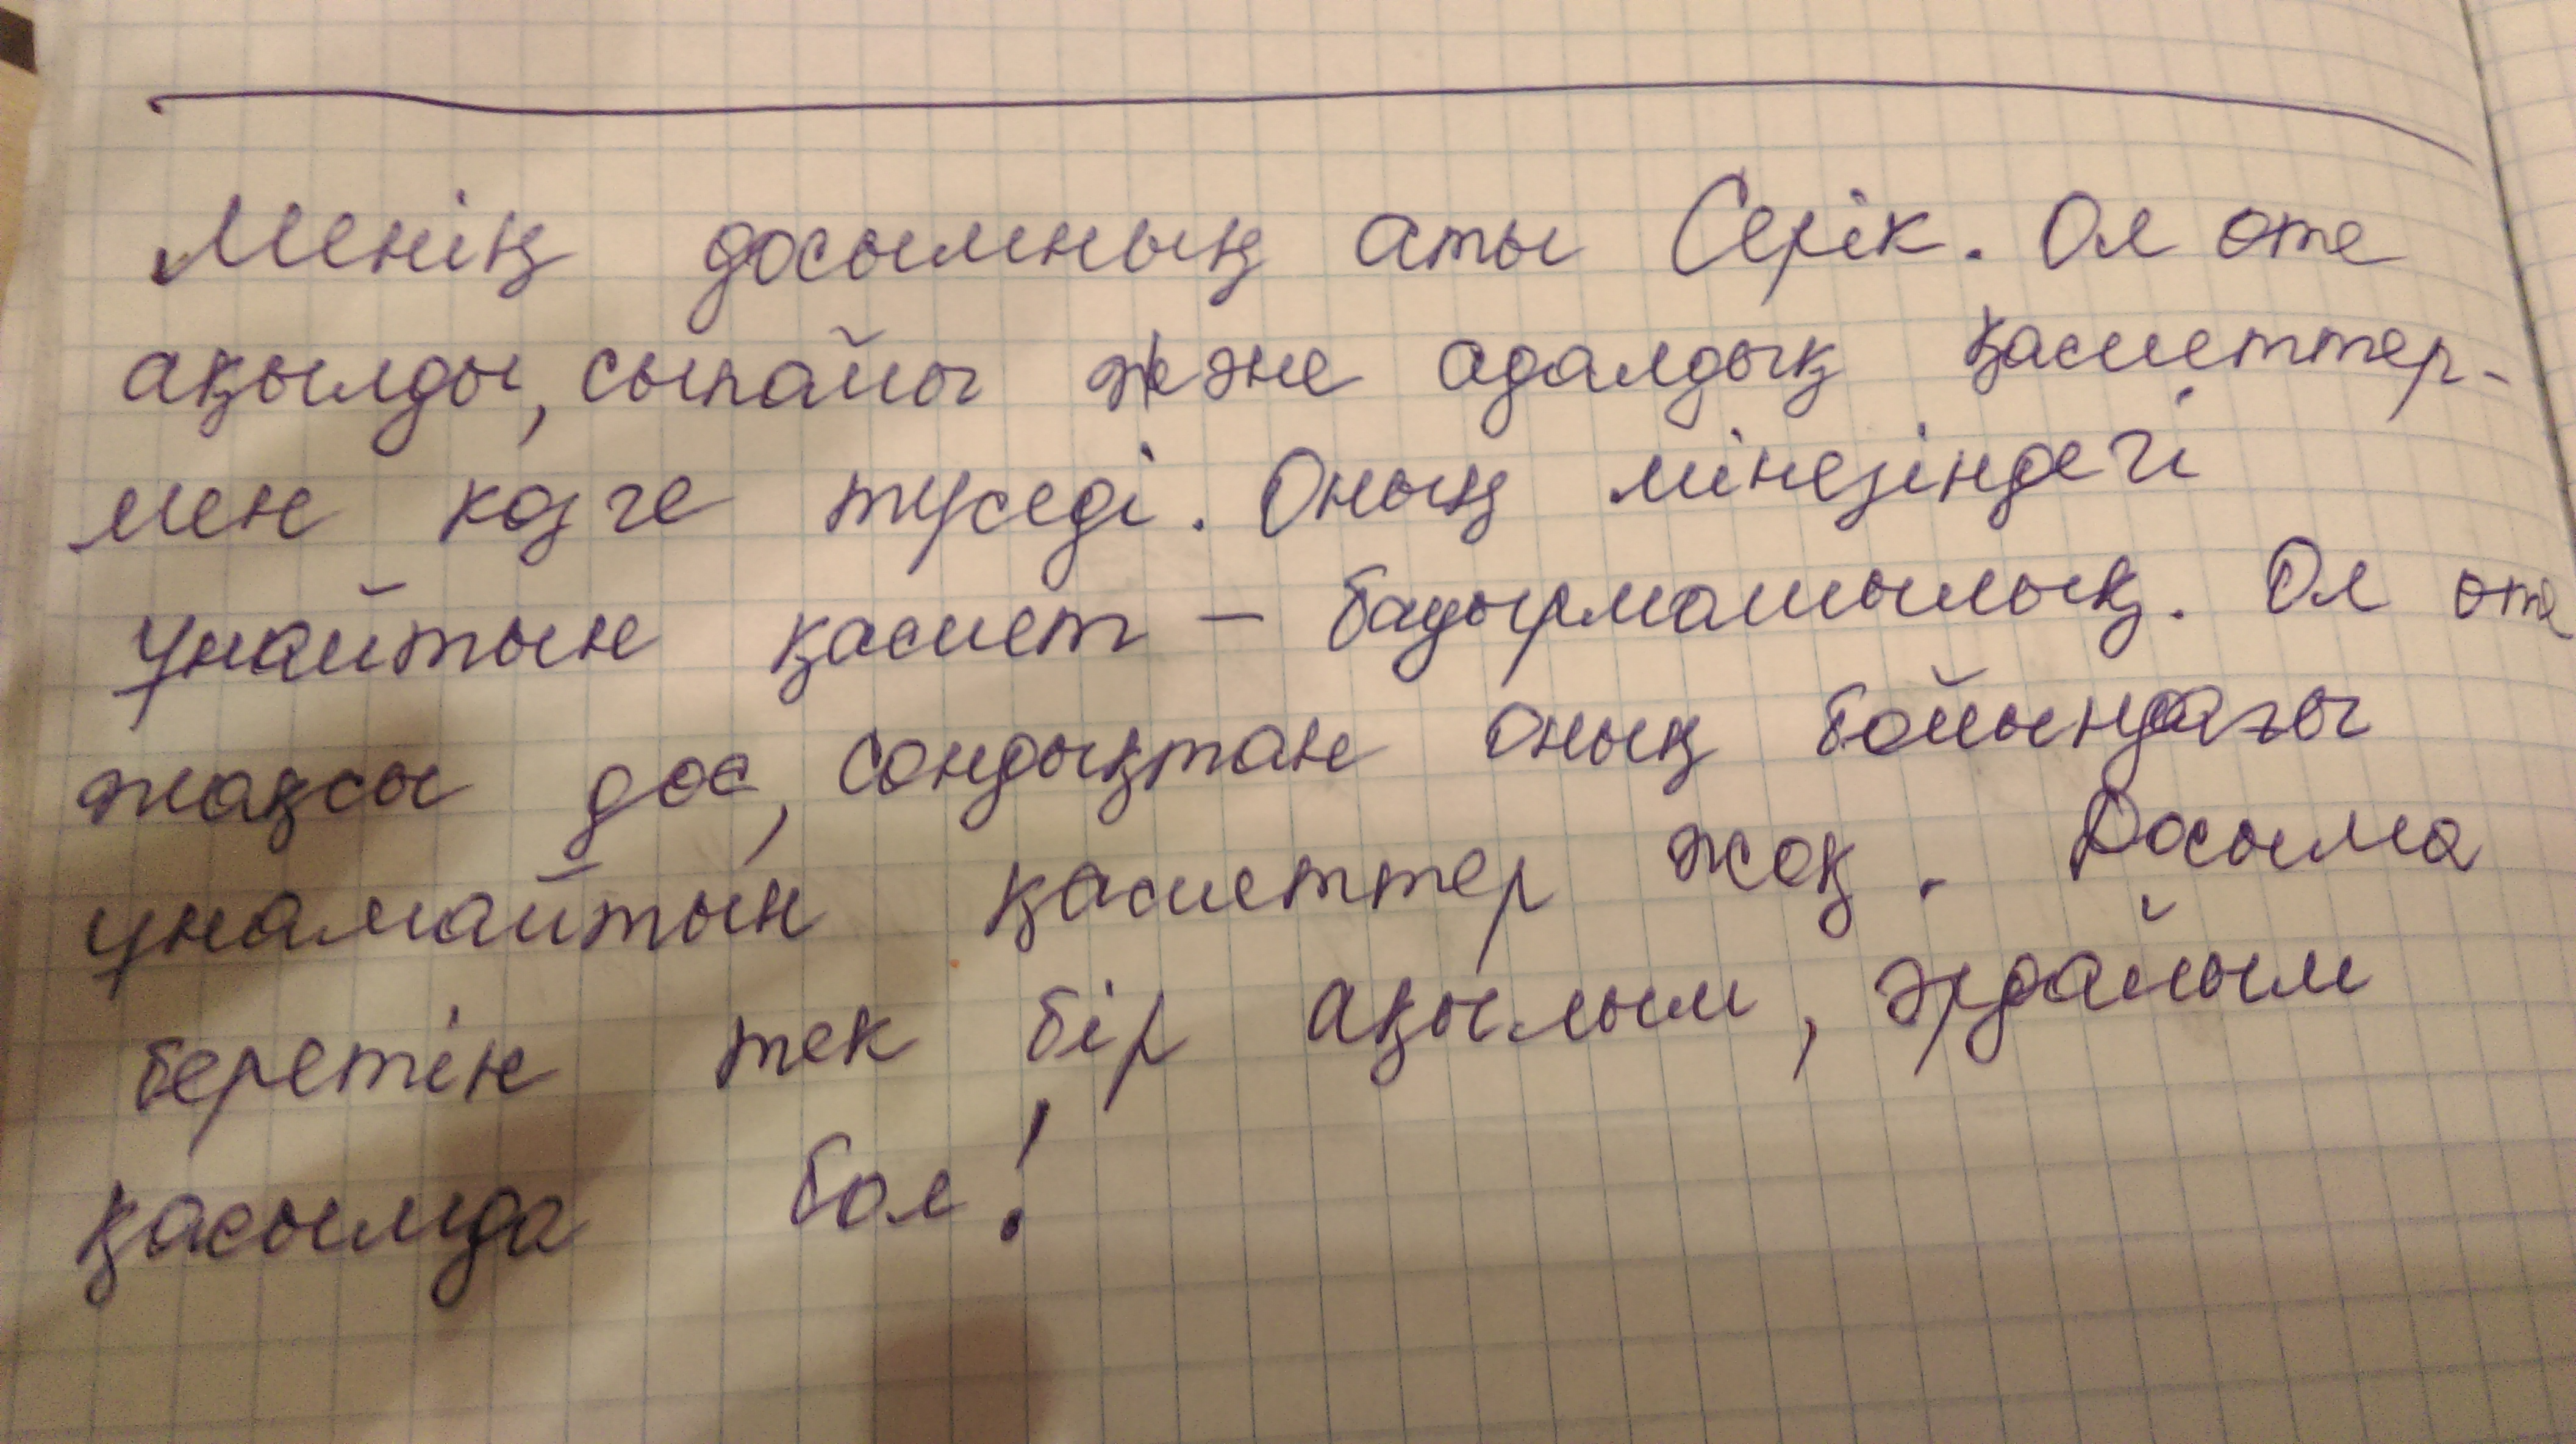 Менің досымның аты Серік. Ол өте
ақылды, сыпайы және адалдық қасиеттер-
мен көзге түседі. Оның мінезіндегі
ұнайтын қасиет – бауырмашылық. Ол өте
жақсы дос, сондықтан оның бойындағы
ұнамайтын қасиеттер жоқ. Досыма
беретін тек бір ақылым, әрдайым
қасымда бол!